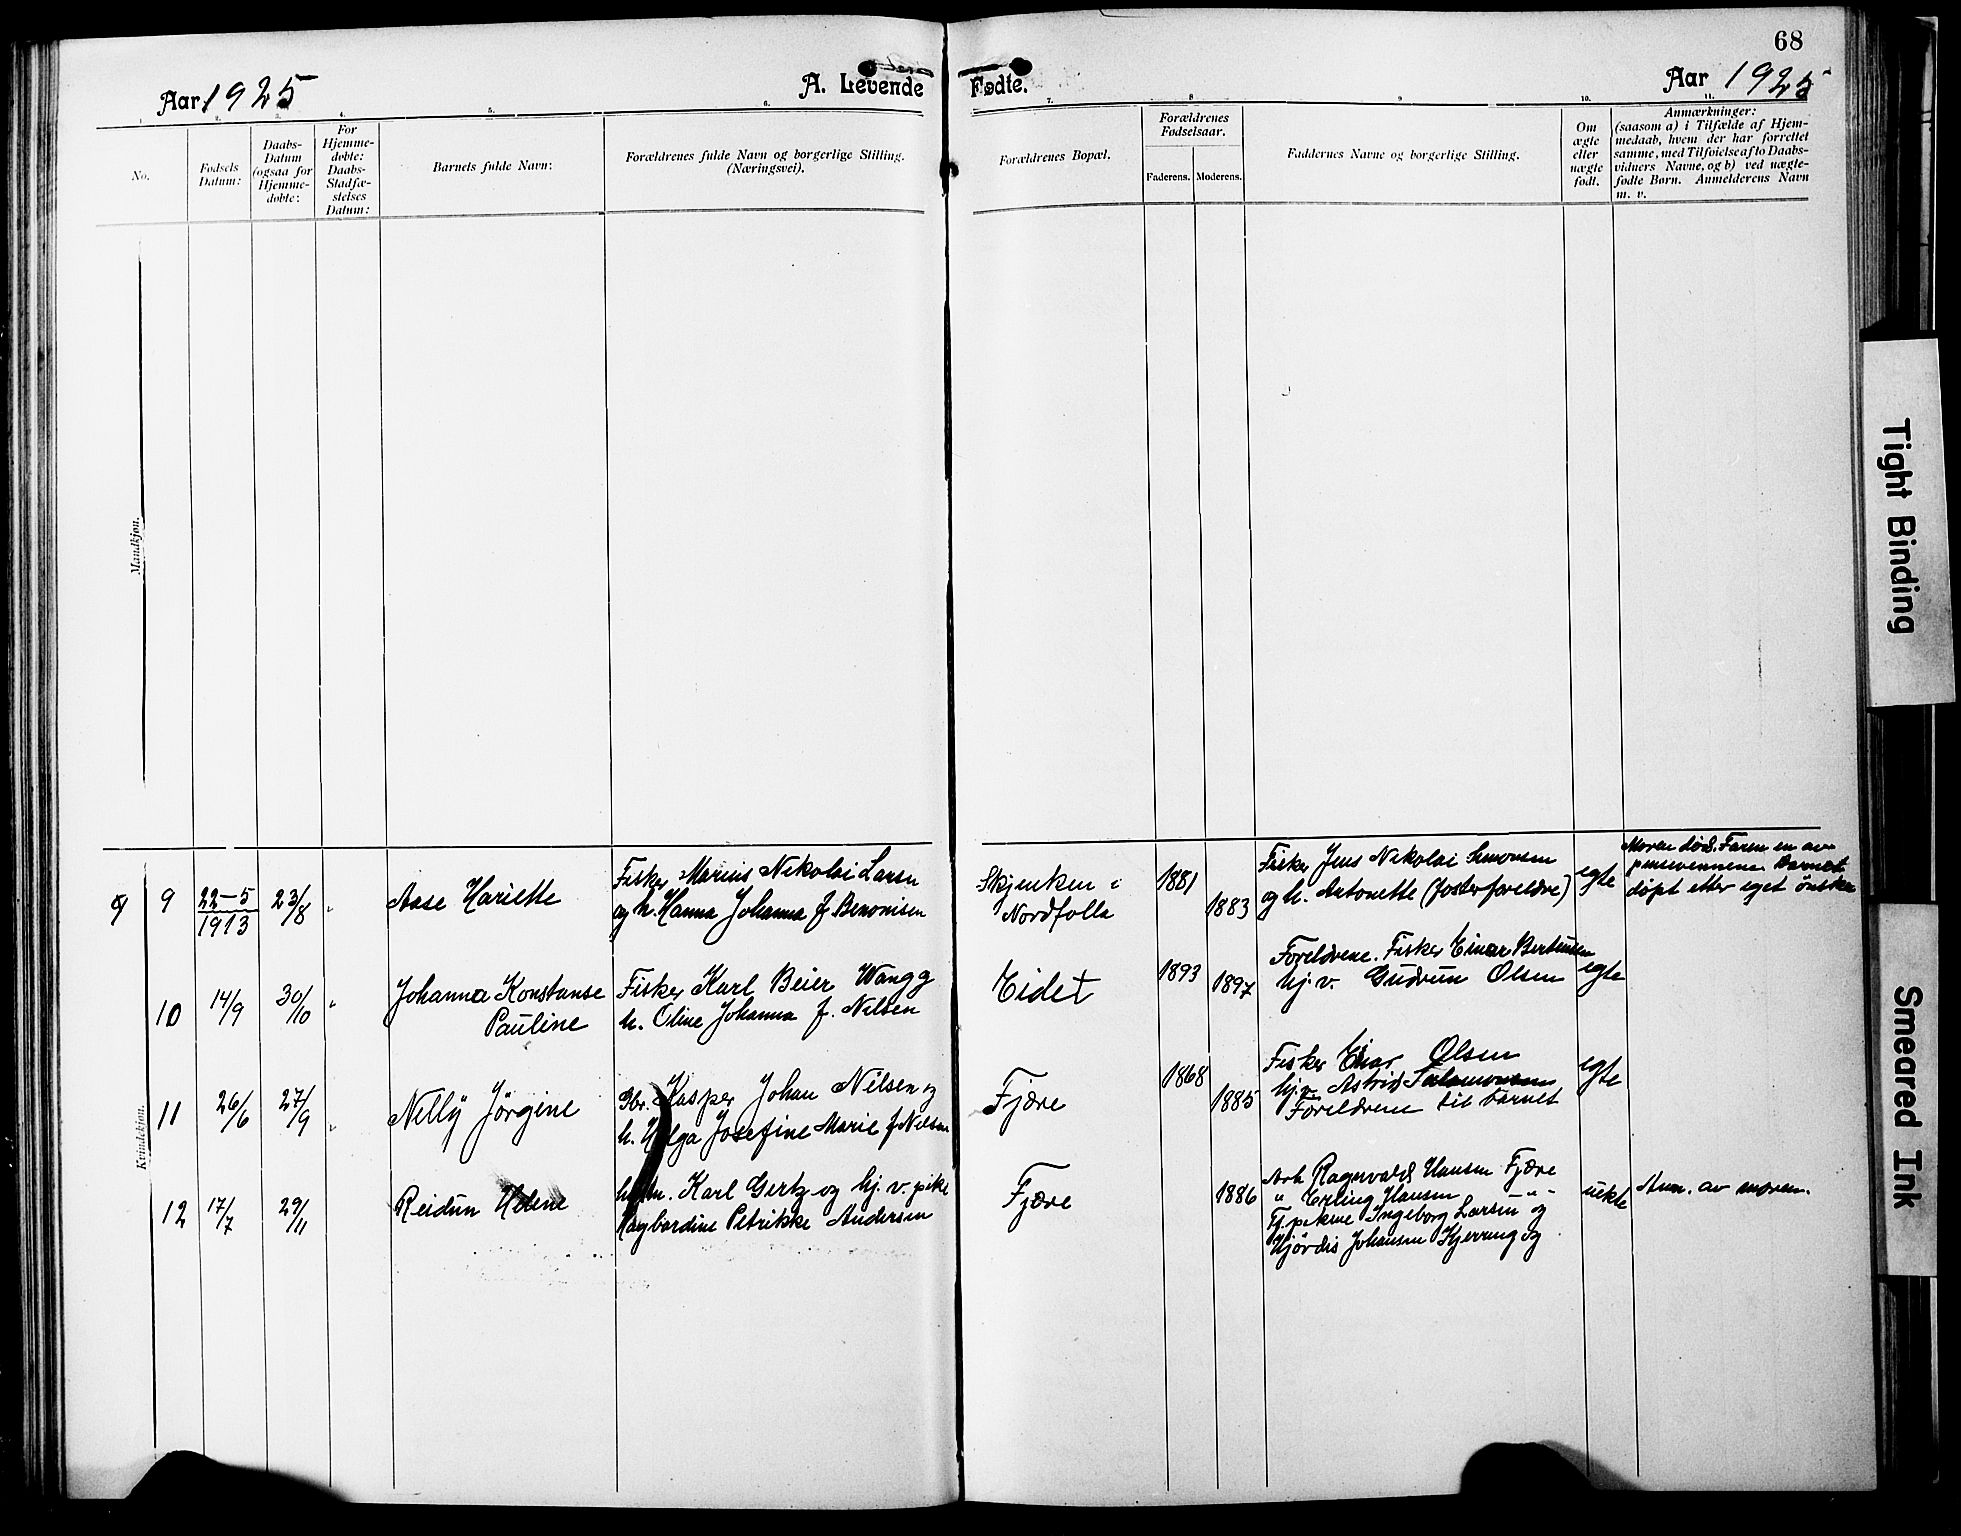 68
Aar 1925
A. Levende Fødte.
Aar 1925
1. 2. 3. 4. 5. 6. 7. 8 9 10. 11.
No.
Fødsels Datum:
Daabs-
Datum
(ogsaa for
Hjemme-
døbte:
For
Hjemme-
døbte:
Daabs-
Stadfæ-
stelses
Datum:
Barnets fulde Navn:
Forældrenes fulde Navn og borgerlige Stilling.
(Næringsvei).
Forældrenes Bopæl.
Forældrenes
Fødselsaar.
Faderens. Moderens.
Faddernes Navne og borgerlige Stilling.
Om
ægte
eller
uægte
født.
Anmærkninger:
(saasom a) i Tilfælde af Hjem-
medaab, hvem der har forrettet
samme, med Tilføielse af to Daabs-
vidners Navne, og b) ved uægte-
fødte Børn. Anmelderens Navn
m. v.
Mandkjøn.
Kvindekjøn.
9 22-5 1913 23/8 "
Aase Hariette
Fisker Marius Nikolai Larsen
og h. Hanna Johanna f Benonisen
Skjenken i
Nordfolla
1881 1883
Fisker Jens Nikolai Simonsen
og h. Antonette (fosterforeldre)
egte
Moren død. Faren en av
Barnet
døpt etter eget ønske
10 14/9 30/10 "
Johanna Konstanse
Pauline
Fisker Karl Beier Wang g
h. Oline Johanna f. Nilsen
Eidet
1893 1897
Foreldrene. Fisker Einar Bertinsen
hj. v. Gudrun Olsen
egte
11 26/6 27/9 "
Nelly Jörgine
Gbr. Kasper Johan Nilsen og
h. Helga Josefine Marie f Nilsen
Fjære
1868 1885
Fisker Einar Olsen
hj.v. Astrid Salamonsen
Foreldrene til barnet
egte
12 17/7 29/11
Reidun Helene
Karl Gertz og hj. v. pike
Hagbardine Petrikke Andersen
Fjære
1886
Arb Ragnvald Hansen Fjære
" Erling Hansen - " -
Tj. pikene Ingeborg Larsen og
Hjørdis Johansen Kjerringøy
uekte
Anm. av moren.
Tight Binding
Smeared Ink